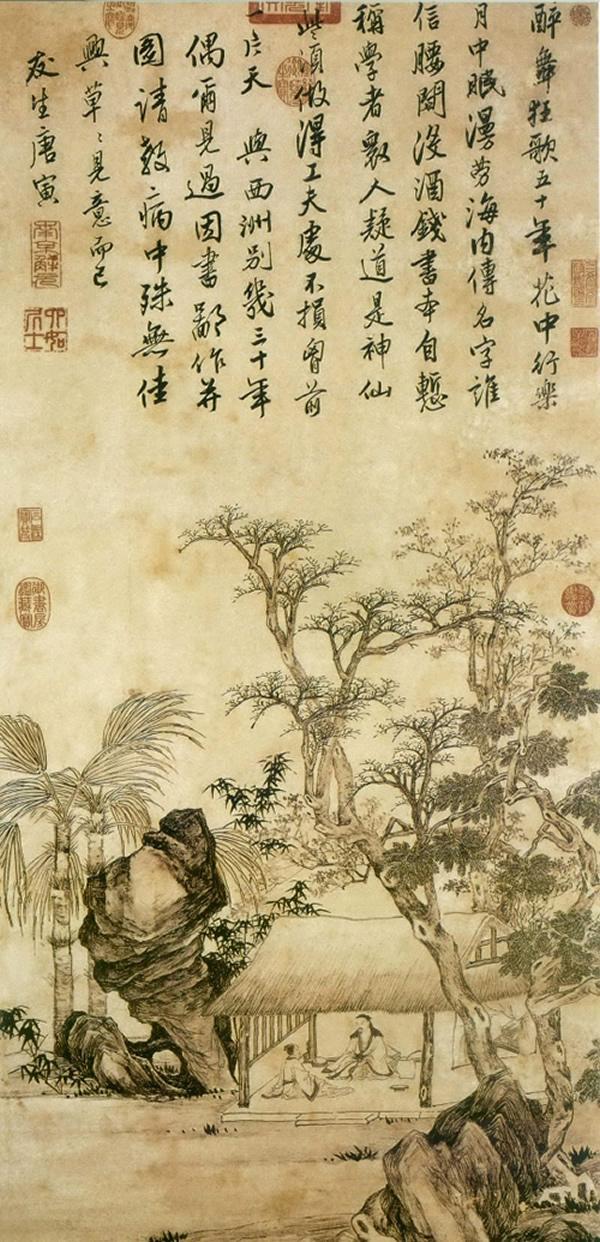 醉舞狂歌五十年花中行樂
月中眠漫勞海内傳名字誰
信腰間没酒錢書本自慙
稱學者衆人疑道是神仙
些須做得工夫處不損胷前
一片天 與西洲别幾三十年
偶爾見過因書鄙作并
圖請教病中殊無佳
興草〻見意而已
友生唐寅
南京解元
六如居士